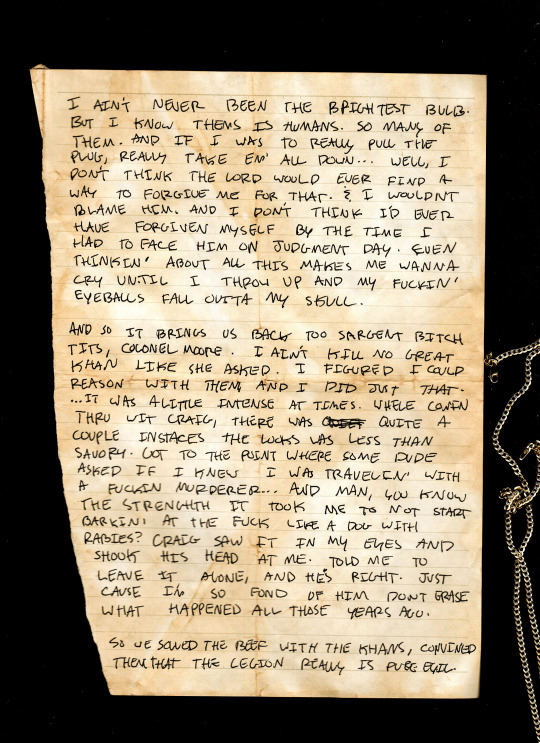 I AIN'T NEVER BEEN THE BRIGHTEST BULB.
BUT I KNOW THEMS IS HUMANS. SO MANY OF
THEM. AND IF I WAS TO REALLY PULL THE
PLUG, REALLY TAKE EM' ALL DOWN... WELL, I
DON'T THINK THE LORD WOULD EVER FIND A
WAY TO FORGIVE ME FOR THAT. & I WOULDN'T
BLAME HIM. AND I DON'T THINK I'D EVER
HAVE FORGIVEN MYSELF BY THE TIME I
HAD TO FACE HIM ON JUDGMENT DAY. EVEN
THINKIN' ABOUT ALL THIS MAKES ME WANNA
CRY UNTIL I THROW UP AND MY FUCKIN'
EYEBALLS FALL OUTTA MY SKULL.
AND SO IT BRINGS US BACK TOO SARGENT BITCH
TITS, COLONEL MOORE. I AIN'T KILL NO GREAT
KHAN LIKE SHE ASKED. I FIGURED I COULD
REASON WITH THEM AND I DID JUST THAT.
...IT WAS A LITTLE INTENSE AT TIMES. WHELE COMIN
THRU WIT CRAIG, THERE WAS QUITE A
COUPLE INSTACES THE LOOKS WAS LESS THAN
SAVORY. GOT TO THE POINT WHERE SOME DUDE
ASKED IF I KNEW I WAS TRAVELIN' WITH
A FUCKIN MURDERER... AND MAN, YOU KNOW
THE STRENGHTH IT TOOK ME TO NOT START
BARKIN' AT THE FUCK LIKE A DOG WITH
RABIES? CRAIG SAW IT IN MY EYES AND
SHOOK HIS HEAD AT ME. TOLD ME TO
LEAVE IT ALONE, AND HE'S RIGHT. JUST
CAUSE I'M SO FOND OF HIM DON'T ERASE
WHAT HAPPENED ALL THOSE YEARS AGO.
SO WE SOLVED THE BEEF WITH THE KHANS, CONVINCED
THEM THAT THE LEGION REALLY IS PURE EVIL.